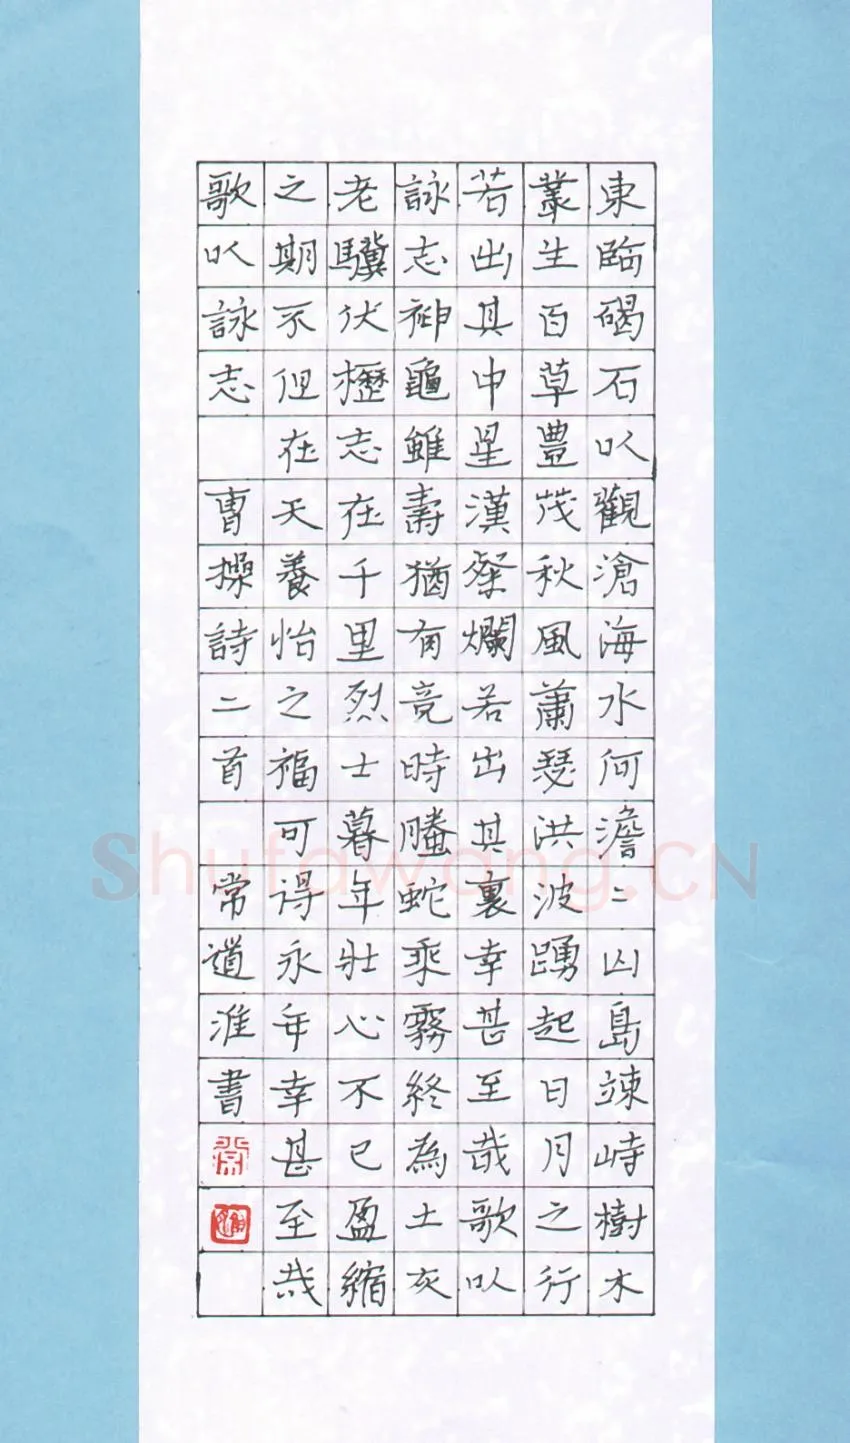 東臨碣石以觀滄海水何澹〻山島竦峙樹木
叢生百草豐茂秋風蕭瑟洪波踴起日月之行
若出其中星漢粲爛若出其裏幸甚至哉歌以
詠志神龜雖壽猶有竟時螣蛇乘霧終為土灰
老驥伏櫪志在千里烈士暮年壯心不已盈縮
之期不但在天養怡之福可得永年幸甚至哉
歌以詠志 曹操詩二首 常道淮書
Shufawang.CN